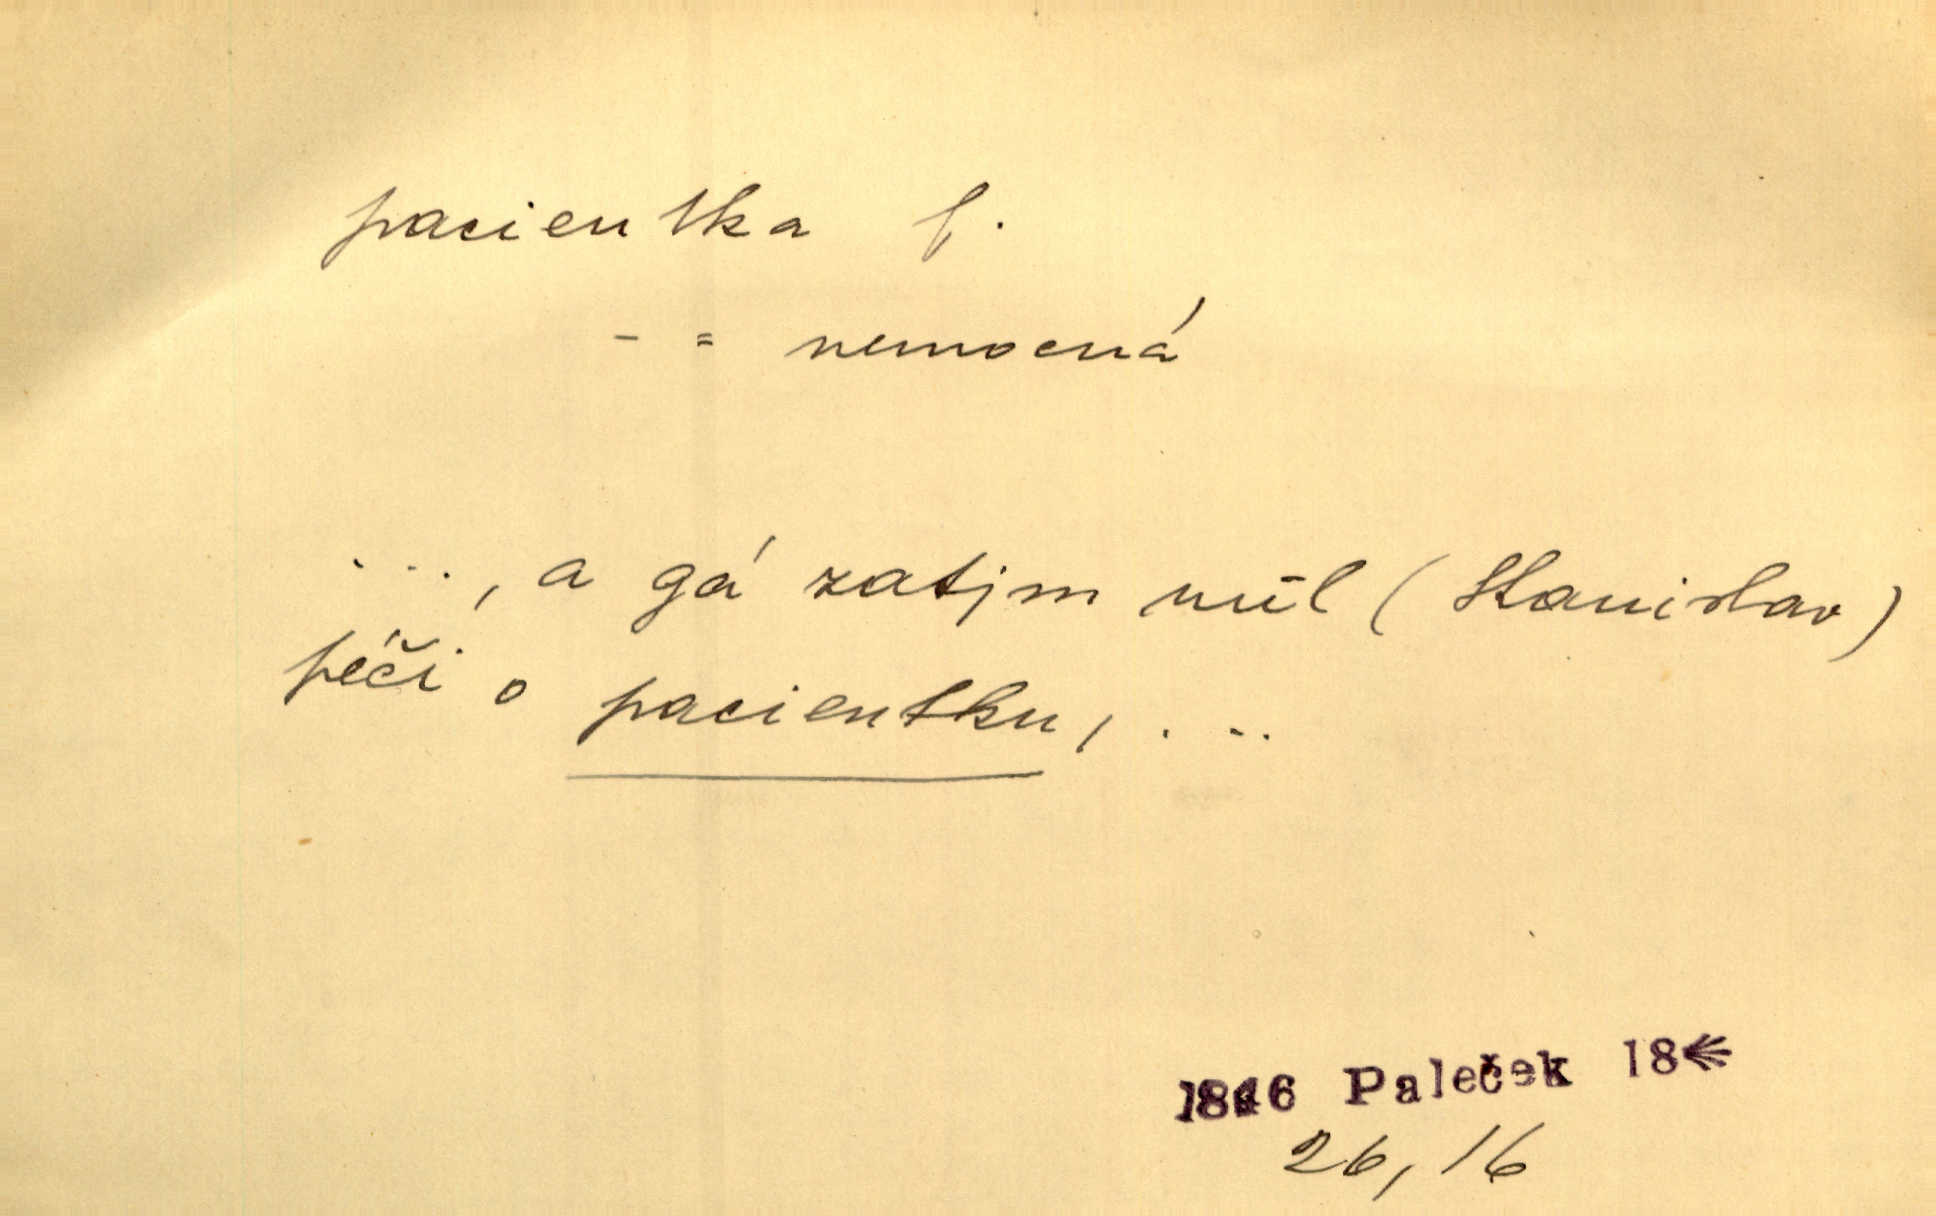 pacientka f.
- = nemocná
..., a gá zatjm mĭl (Stanislav)
péči o pacientku, ...
1846 Paleček 18
26, 16